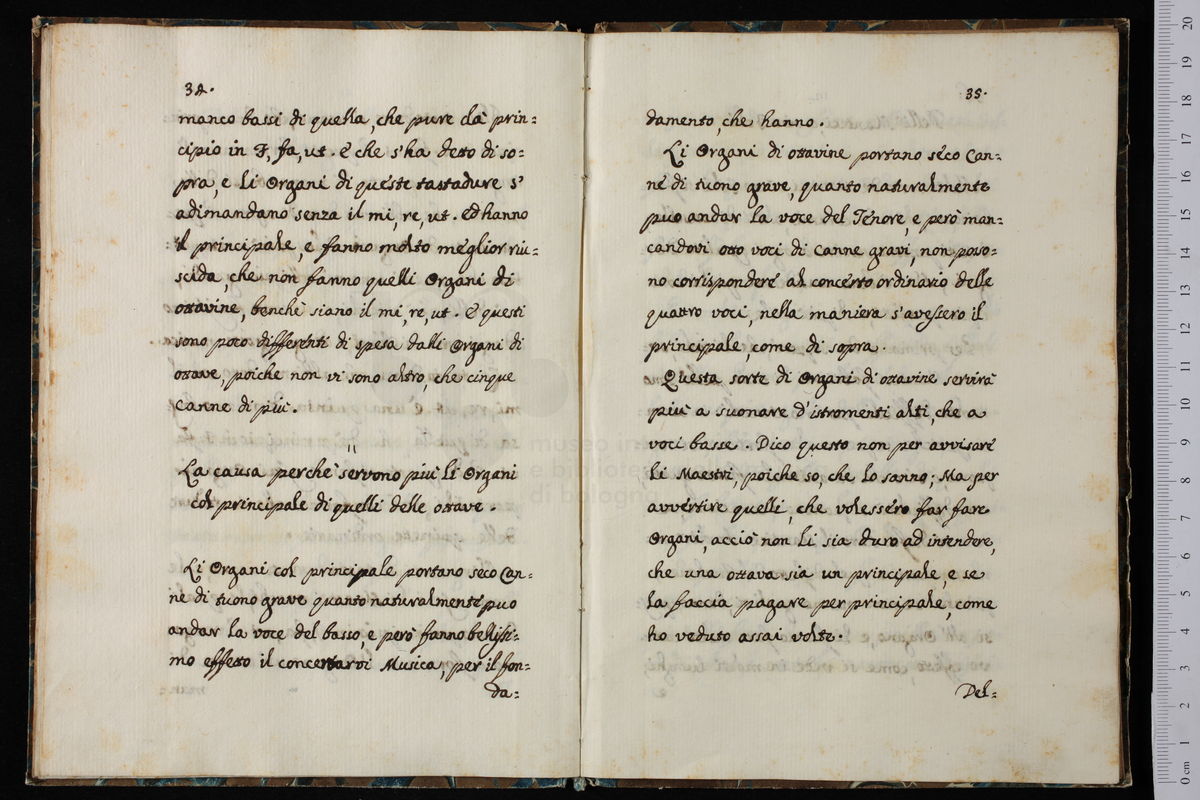 34.
manco bassi di quella, che pure dà prin=
cipio in F, fa, ut. E che s'ha detto di so=
pra, e li Organi di queste tastadure s'
adimandano senza il mi, re, ut. Ed hanno
il principale, e fanno molto meglior riu=
scida, che non fanno quelli Organi di
ottavine, benchè siano il mi, re, ut. E questi
sono poco differenti di spesa dalli Organi di
ottave, poiche non vi sono altro, che cinque
Canne di più.
La causa perchè servono più li Organi
col principale di quelli delle ottave.
Li Organi col principale portano seco Can=
ne di tuono grave quanto naturalmente puo
andar la voce del basso, e però fanno bellissi=
mo effetto il concertarvi Musica, per il fon=
da=
35.
damento, che hanno.
Li Organi di ottavine portano seco Can=
ne di tuono grave, quanto naturalmente
puo andar la voce del Tenore, e però man=
candovi otto voci di Canne gravi, non posso=
no corrispondere al concerto ordinario delle
quattro voci, nella maniera s'avessero il
principale, come di sopra.
Questa sorte di Organi di ottavine servirà
più a suonare d'istromenti alti, che a
voci basse. Dico questo non per avvisare
li Maestri, poiche so, che lo sanno; Ma per
avvertire quelli, che volessero far fare
Organi, acciò non li sia duro ad intendere,
che una ottava sia un principale, e se
la faccia pagare per principale, come
ho veduto assai volte.
Del=
museo in
e bibliote
di bologna
0 cm 1 2 3 4 5 6 7 8 9 10 11 12 13 14 15 16 17 18 19 20